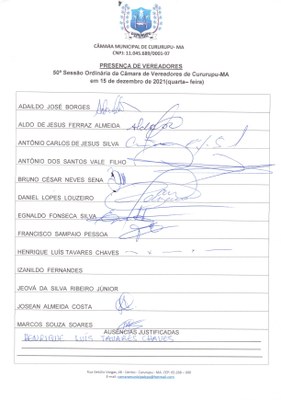 CÂMARA MUNICIPAL DE CURURUPU- MA
CNPJ: 11.041.588/0001-07
PRESENCA DE VEREADORES
50ª Sessão Ordinária da Câmara de Vereadores de Cururupu-MA
em 15 de dezembro de 2021(quarta– feira)
ADAILDO JOSÉ BORGES
ALDO DE JESUS FERRAZ ALMEIDA
ANTÔNIO CARLOS DE JESUS SILVA
ANTÔNIO DOS SANTOS VALE FILHO
BRUNO CÉSAR NEVES SENA
DANIEL LOPES LOUZEIRO
EGNALDO FONSECA SILVA
FRANCISCO SAMPAIO PESSOA
HENRIQUE LUÍS TAVARES CHAVES
IZANILDO FERNANDES
JEOVÁ DA SILVA RIBEIRO JÚNIOR
JOSEAN ALMEIDA COSTA
MARCOS SOUZA SOARES
AUSÊNCIAS JUSTIFICADAS
HENRIQUE LUIS TAVARES CHAVES